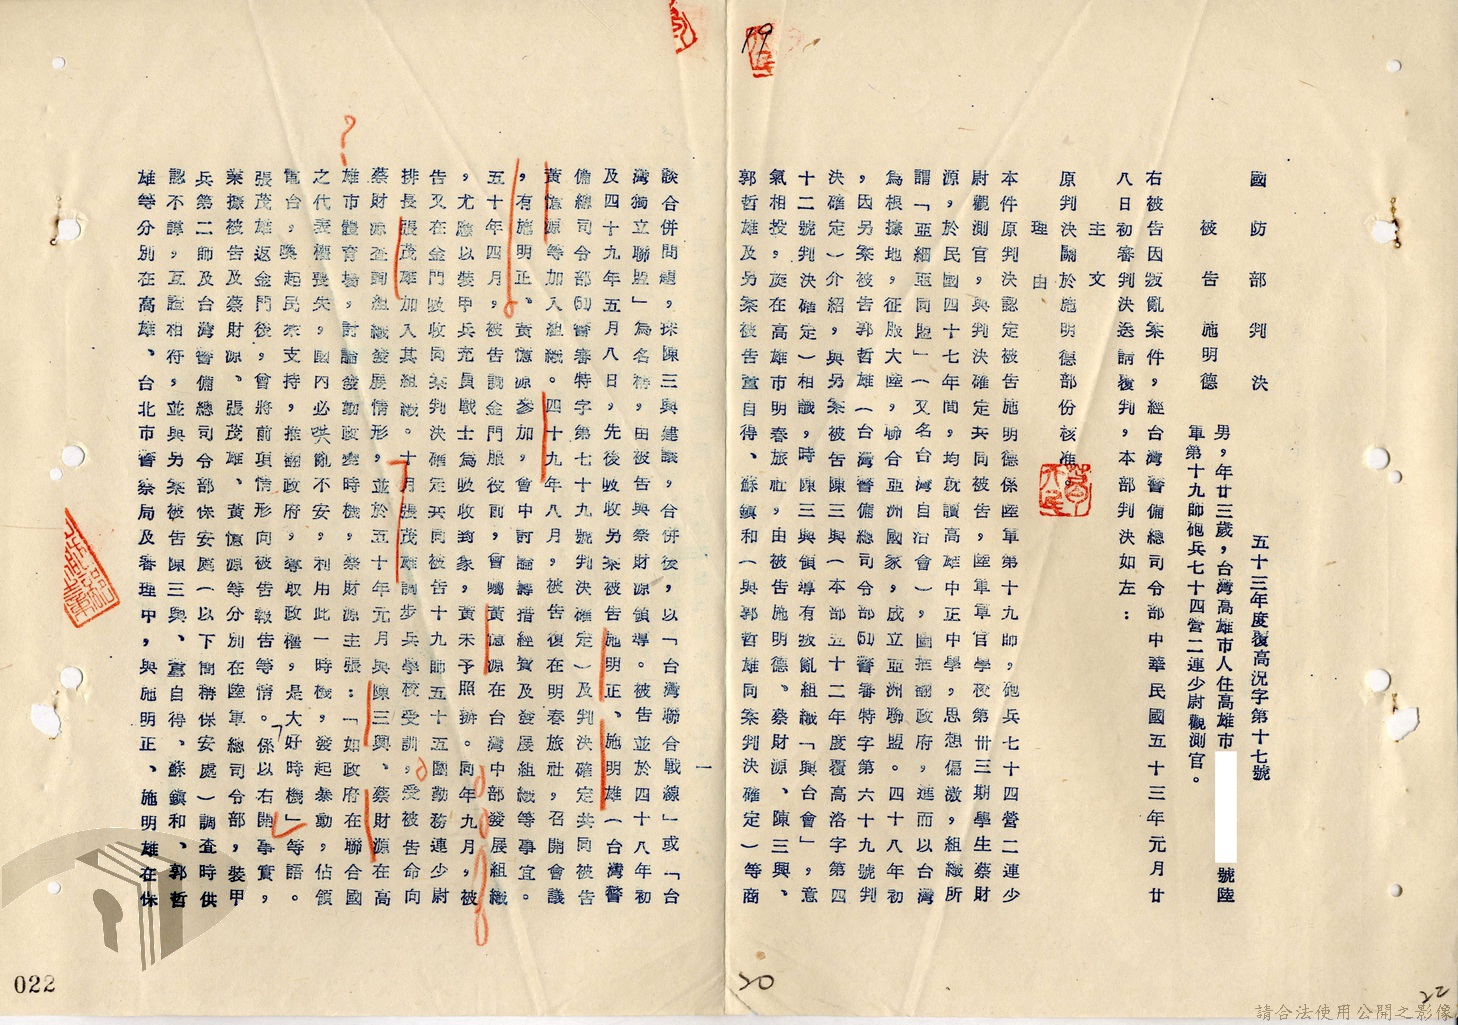 國防部判決
五十三年度覆高況字第十七號
被告 施明德
男,年廿三歲,台灣高雄市人住高雄市 號陸
軍第十九師砲兵七十四營二連少尉觀測官。
右被告因叛亂案件,經台灣警備總司令部中華民國五十三年元月廿
八日初審判決送請覆判,本部判決如左:
主文
原判決關於施明德部份核准。
理由
本件原判決認定被告施明德係陸軍第十九師,砲兵七十四營二連少
尉觀測官,與判決確定共同被告,陸軍軍官學校第卅三期學生蔡財
源,於民國四十七年間,均就讀高雄中正中學,思想偏激,組織所
謂「亞細亞同盟」(又名台灣自治會),圖推翻政府,進而以台灣
為根據地,征服大陸,聯合亞洲國家,成立亞洲聯盟。四十八年初
,因另案被告郭哲雄(台灣警備總司令部(51)警審特字第六十九號判
決確定)介紹,與另案被告陳三興(本部五十二年度覆高洛字第四
十二號判決確定)相識,時陳三興領導有叛亂組織「興台會」,意
氣相投,旋在高雄市明春旅社,由被告施明德、蔡財源、陳三興、
郭哲雄及另案被告董自得、蘇鎮和(與郭哲雄同案判決確定)等商
談合併問題,採陳三興建議,合併後,以「台灣聯合戰線」或「台
灣獨立聯盟」為名稱,由被告與蔡財源領導。被告並於四十八年初
及四十九年五月八日,先後吸收另案被告施明正、施明雄(台灣警
備總司令部(51)警審特字第七十九號判決確定)及判決確定共同被告
黃憶源等加入組織。四十九年八月,被告復在明春旅社,召開會議
,有施明正、黃憶源參加,會中討論籌措經費及發展組織等事宜。
五十年四月,被告調金門服役前,曾囑黃憶源在台灣中部發展組織
,尤應以裝甲兵充員戰士為吸收對象,黃未予照辦。同年九月,被
告又在金門吸收同案判決確定共同被告十九師五十五團勤務連少尉
排長張茂雄加入其組織。十月張茂雄調步兵學校受訓,受被告命向
蔡財源查詢組織發展情形,並於五十年元月與陳三興、蔡財源在高
雄市體育場,討論發動政變時機,蔡財源主張:「如政府在聯合國
之代表權喪失,國內必哄亂不安,利用此一時機,發起暴動,佔領
電台,喚起民眾支持,推翻政府,奪取政權,是大好時機」等語。
張茂雄返金門後,曾將前項情形向被告報告等情。係以右開事實,
業據被告及蔡財源、張茂雄、黃憶源等分別在陸軍總司令部,裝甲
兵第二師及台灣警備總司令部保安處(以下簡稱保安處)調查時供
認不諱,互證相符,並與另案被告陳三興、董自得、蘇鎮和、郭哲
雄等分別在高雄、台北市警察局及審理中,與施明正、施明雄在保
一
19
20
22
022
請合法使用公開之影像